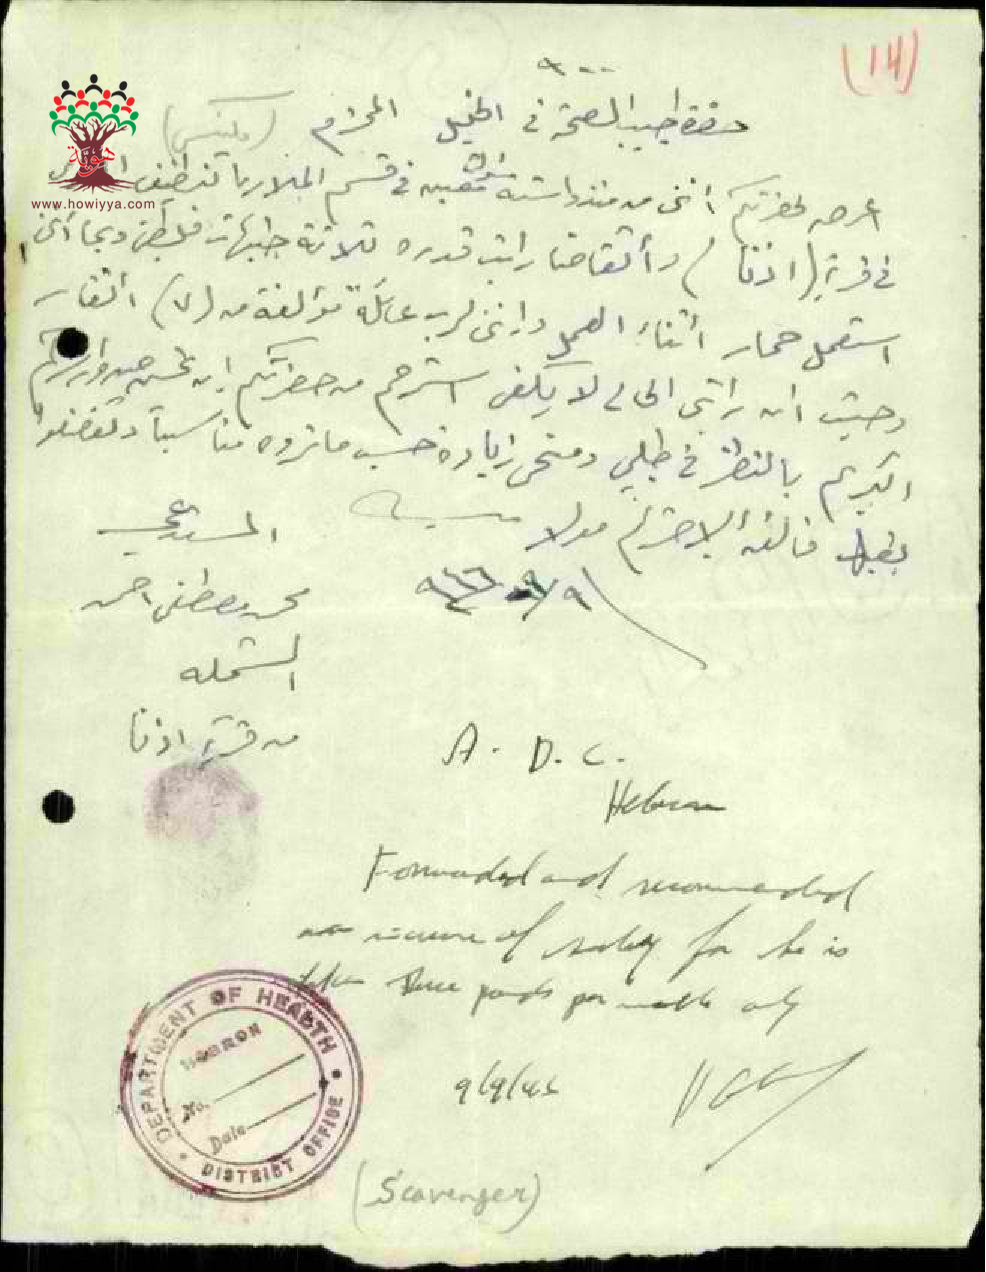 (14)
حضرة طبيب الصحة في الخليل المحترم
هوية
www.howiyya.com
اعرض لحضرتكم انني من مدة سنة معين في قسم الملاريا لتنظيف
في قرية (اذنا) واتقاضا راتب قدره ثلاثة جنيهات فلسطيني وبما أنني
استعمل حمار أثناء العمل وانني لرب عائلة مؤلفة من (٧) انفار
وحيث ان راتبي الحالي لا يكفي استرحم من حضرتكم ان
الكريم بالنظر في طلبي ومنحي زيادة حسب ما تروه مناسباً وتفضلوا
بقبول فائق الاحترام مولاي سيدي
المستدعي
٩/٩/٩٤٦
محمد مصطفى احمد
المشمله
من قرية اذنا
A. D. C.
Hebron
Forwarded and recommended
an increase of salary for he is
taken three pounds per month only
9/9/46
DEPARTMENT OF HEALTH
HEBRON
No.
Date
DISTRICT OFFICE
(Scavenger)